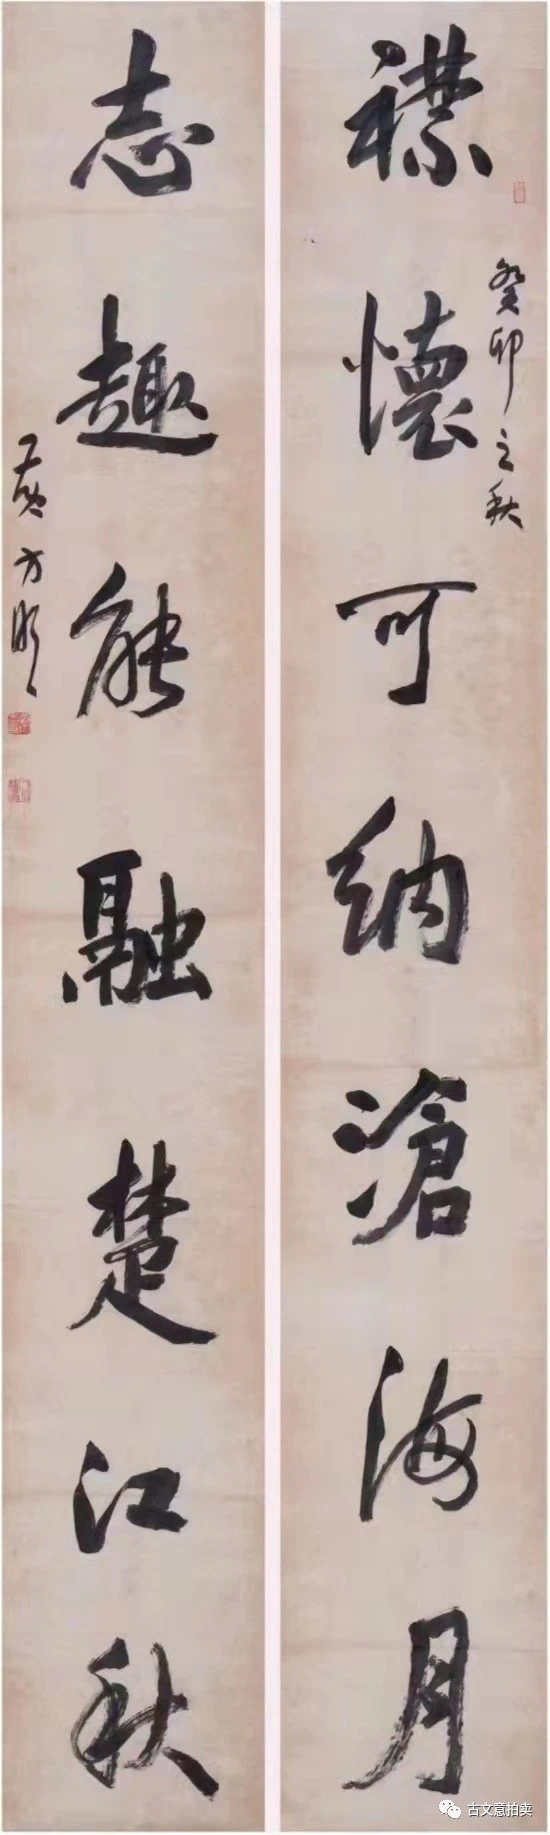 襟懷可納滄海月
癸卯之秋
志趣能融楚江秋
古文意拍卖